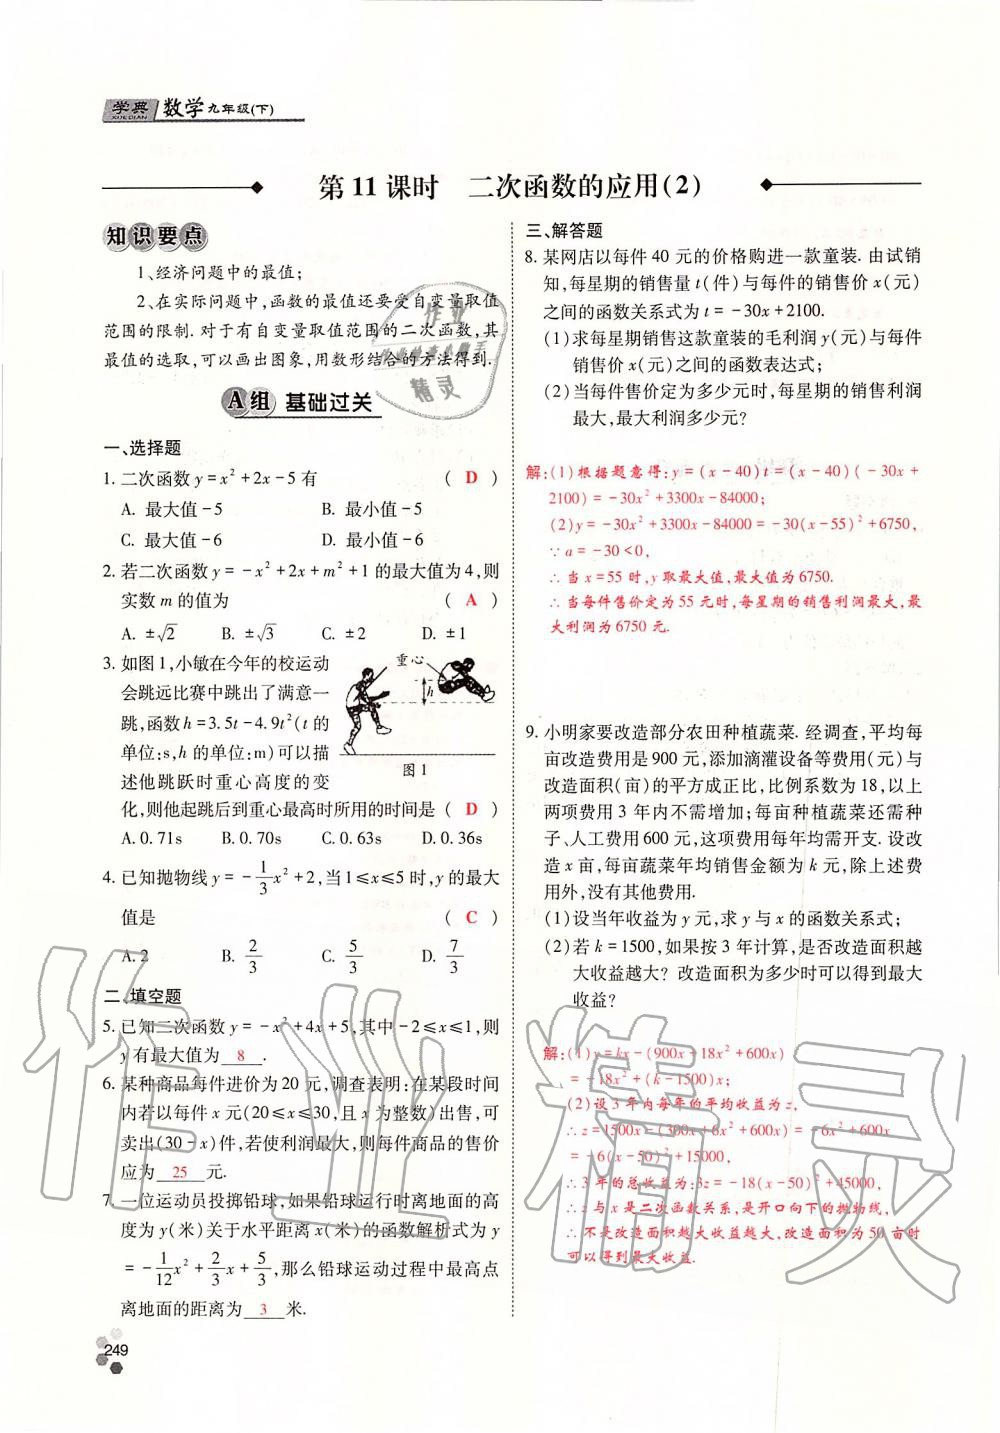 学典 数学九年级(下)
XUE DIAN
第11课时　二次函数的应用(2)
知识要点
1、经济问题中的最值;
2、在实际问题中,函数的最值还要受自变量取值
范围的限制.对于有自变量取值范围的二次函数,其
最值的选取,可以画出图象,用数形结合的方法得到.
A组 基础过关
一、选择题
1. 二次函数y=x²+2x-5有 ( D )
A. 最大值-5 B. 最小值-5
C. 最大值-6 D. 最小值-6
2. 若二次函数y=-x²+2x+m²+1的最大值为4,则
实数m的值为 ( A )
A. ±√2 B. ±√3 C. ±2 D. ±1
3. 如图1,小敏在今年的校运动
会跳远比赛中跳出了满意一
跳,函数h=3.5t-4.9t²(t的
单位:s,h的单位:m)可以描
述他跳跃时重心高度的变
重心
h
图1
化,则他起跳后到重心最高时所用的时间是 ( D )
A.0.71s B.0.70s C.0.63s D.0.36s
4. 已知抛物线y=-1/3x²+2,当1≤x≤5时,y的最大
值是 ( C )
A.2 B. 2/3 C. 5/3 D. 7/3
二、填空题
5. 已知二次函数y=-x²+4x+5,其中-2≤x≤1,则
y有最大值为 8 .
6. 某种商品每件进价为20元,调查表明:在某段时间
内若以每件x元(20≤x≤30,且x为整数)出售,可
卖出(30-x)件,若使利润最大,则每件商品的售价
应为 25 元.
7. 一位运动员投掷铅球,如果铅球运行时离地面的高
度为y(米)关于水平距离x(米)的函数解析式为y
=-1/12x²+2/3x+5/3,那么铅球运动过程中最高点
离地面的距离为 3 米.
249
三、解答题
8. 某网店以每件40元的价格购进一款童装.由试销
知,每星期的销售量t(件)与每件的销售价x(元)
之间的函数关系式为t=-30x+2100.
(1)求每星期销售这款童装的毛利润y(元)与每件
销售价x(元)之间的函数表达式;
(2)当每件售价定为多少元时,每星期的销售利润
最大,最大利润多少元?
解:(1)根据题意得:y=(x-40)t=(x-40)(-30x+
2100)=-30x²+3300x-84000;
(2)y=-30x²+3300x-84000=-30(x-55)²+6750,
∵a=-30<0,
∴当x=55时,y取最大值,最大值为6750.
∴当每件售价定为55元时,每星期的销售利润最大,最
大利润为6750元.
9. 小明家要改造部分农田种植蔬菜.经调查,平均每
亩改造费用是900元,添加滴灌设备等费用(元)与
改造面积(亩)的平方成正比,比例系数为18,以上
两项费用3年内不需增加;每亩种植蔬菜还需种
子、人工费用600元,这项费用每年均需开支.设改
造x亩,每亩蔬菜年均销售金额为k元,除上述费
用外,没有其他费用.
(1)设当年收益为y元,求y与x的函数关系式;
(2)若k=1500,如果按3年计算,是否改造面积越
大收益越大?改造面积为多少时可以得到最大
收益?
解:(1)y=kx-(900x+18x²+600x)
=-18x²+(k-1500)x;
(2)设3年内每年的平均收益为z,
∴z=1500x-(300x+6x²+600x)=-6x²+600x
=-6(x-50)²+15000,
∴3年的总收益为:3z=-18(x-50)²+45000,
∴z与x是二次函数关系,是开口向下的抛物线,
∴不是改造面积越大收益越大,改造面积为50亩时
可以得到最大收益.
作业精灵
作业
精灵